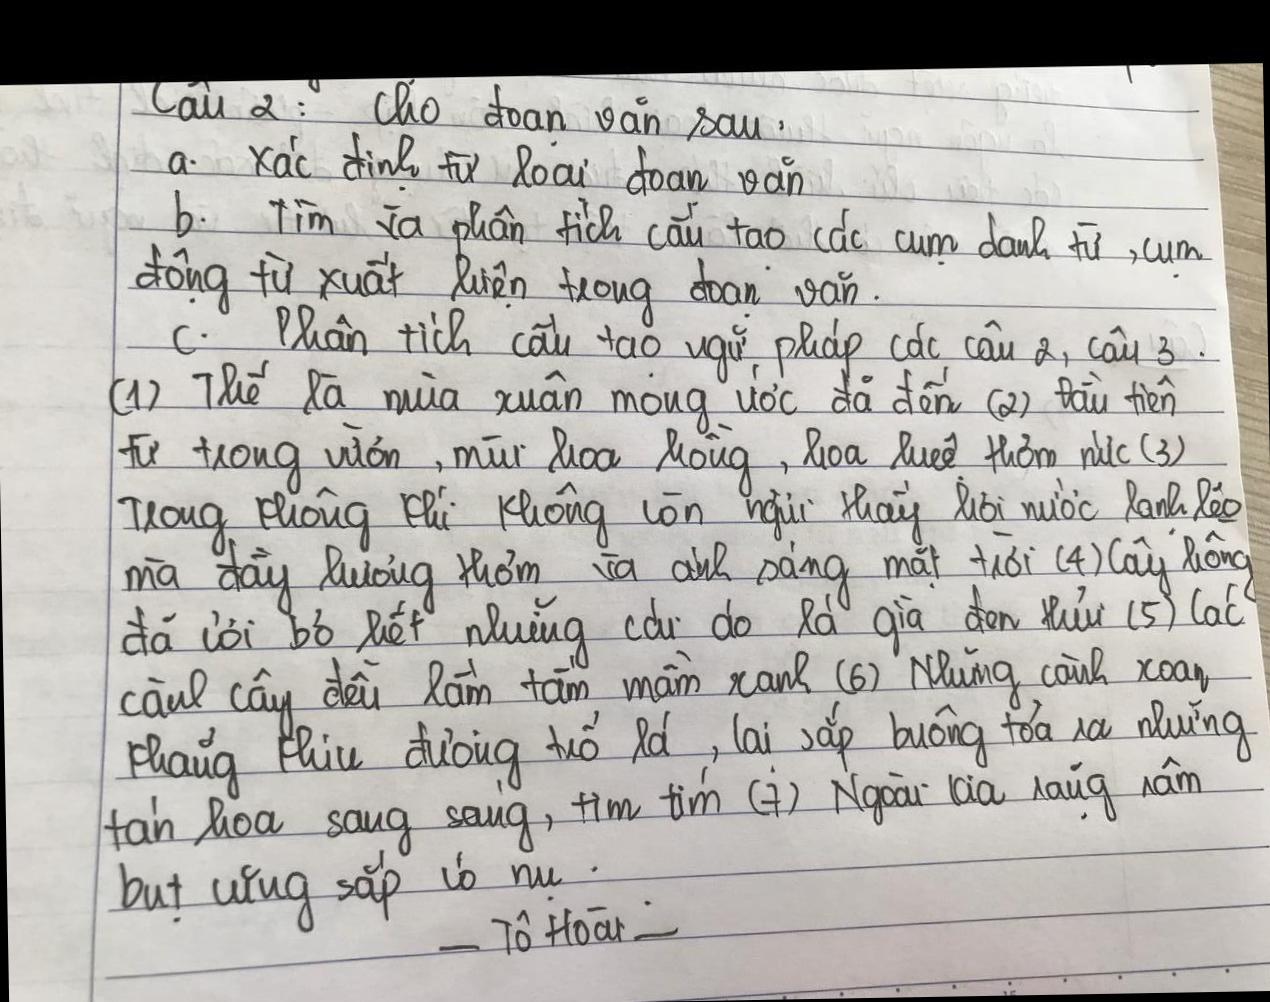 Câu 2: Cho đoạn văn sau:
a. xác định từ loại đoan văn
b. Tìm và phân tích cấu tạo các cụm danh từ, cụm
động từ xuất hiện trong đoạn văn.
c. Phân tích cấu tạo ngữ pháp các câu 2, câu 3.
(1) Thế là mùa xuân mong ước đã đến (2) Đầu tiên
từ trong vườn, mùi hoa hồng, hoa huệ thơm nức (3)
Trong không khí không còn ngửi thấy hơi nước lạnh lẽo
mà đầy hương thơm và ánh sáng mặt trời (4) Cây hồng
đã cởi bỏ hết những cái áo lá già đen thủi (5) Các
cành cây đều lấm tấm mầm xanh (6) Những cành xoan
khẳng khiu đương trổ lá, lại sắp buông tỏa ra những
tán hoa sang sáng, tim tím (7) Ngoài kia rặng râm
bụt cũng sắp có nụ.
— Tô Hoài —